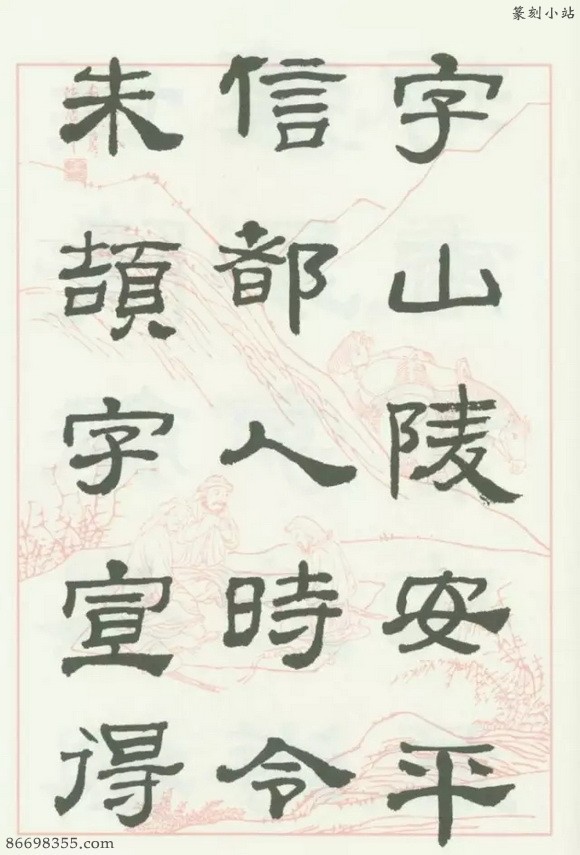 篆刻小站
字山陵安平
信都人時令
朱頡字宣得
86698355.com